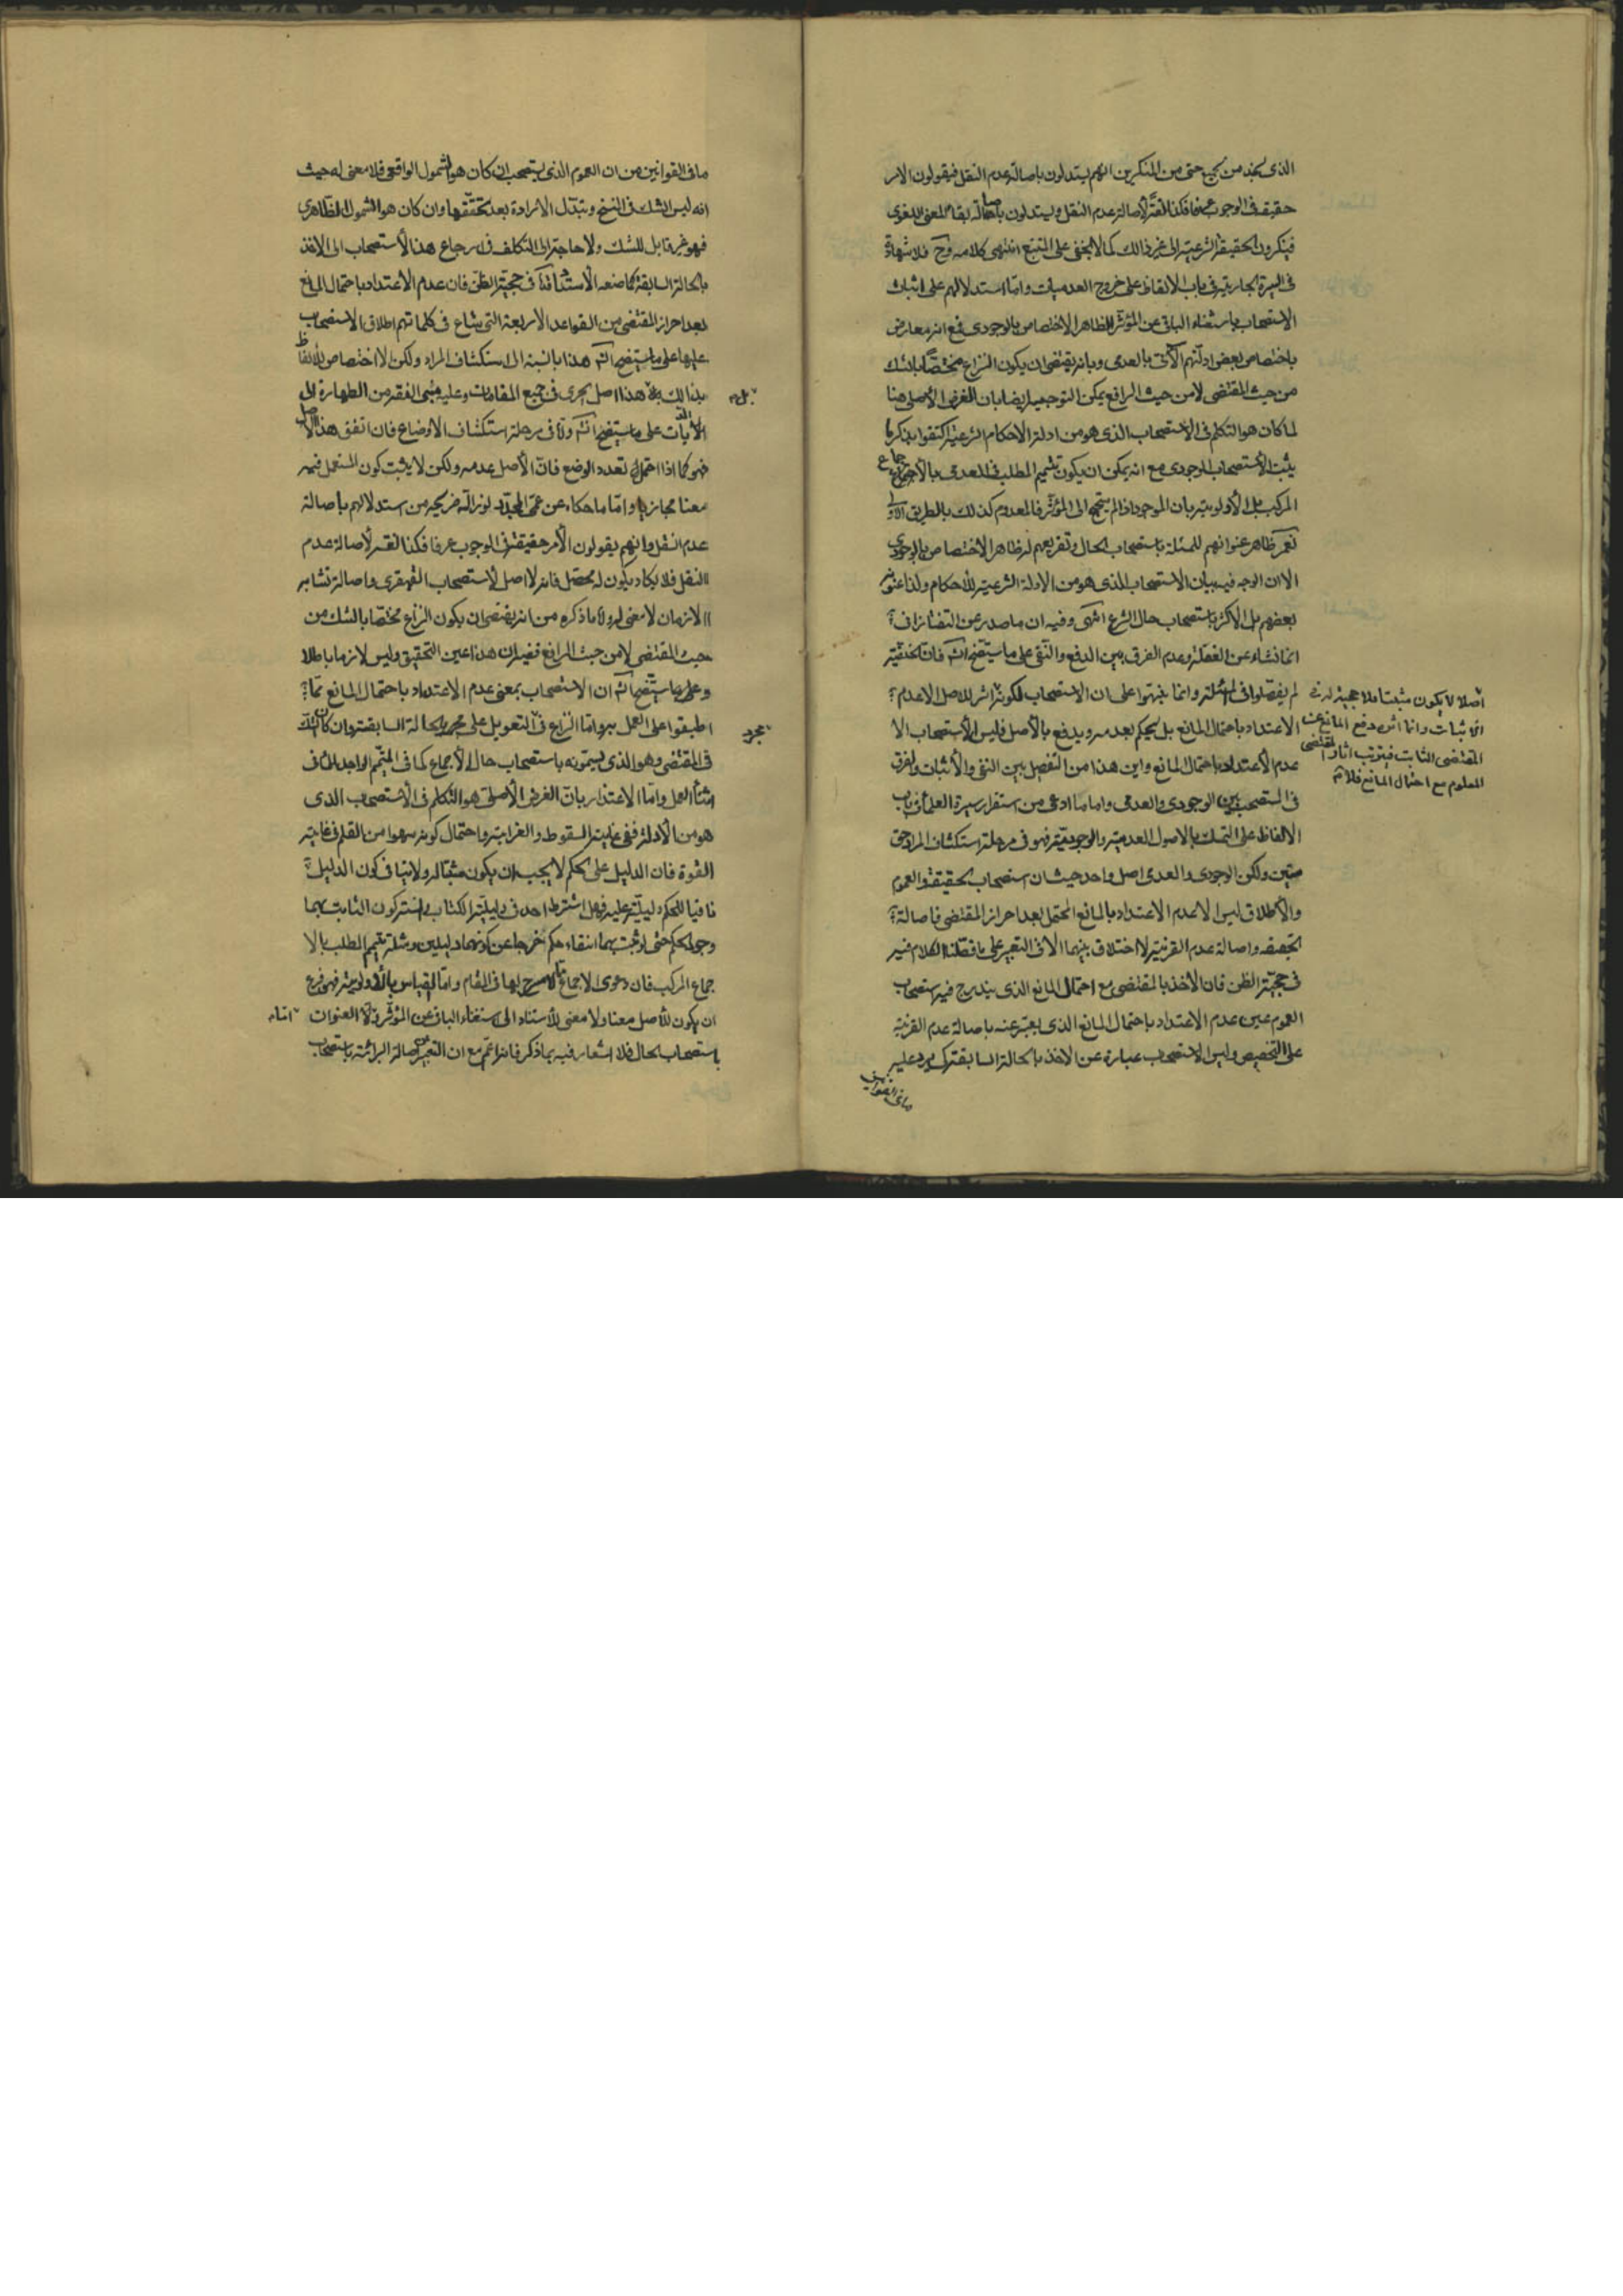 الذى يخبد من كحج حتى من المنكرين انهم يستدلون باصالة عدم النقل فيقولون الامر
حقيقة فى الوجوب عرفا فكذا لغة لأصالة عدم النقل ويستدلون باصالة بقاء المعنى اللغوى
فينكرون الحقيقة الشرعية الى غير ذالك كما لا يخفى على المتتبع انتهى كلامه وح فلا شهادة
فى السيرة الجارية فى باب الالفاظ على خروج العدميات واما استدلالهم على اثبات
الاستصحاب باستغناء الباقى عن المؤثر الظاهر الاختصاص بالوجودى فمع انه معارض
باختصاص بعض ادلتهم الآتى بالعدمى وبانه يقتضى ان يكون النزاع مختصا بالشك
من حيث المقتضى لا من حيث الرافع يمكن التوجيه ايضا بان الغرض الأصلى هنا
لما كان هو التكلم فى الاستصحاب الذى هو من ادلة الاحكام الشرعية اكتفوا بذكر ما
يثبت الأستصحاب الوجودى مع انه يمكن ان يكون تتميم المطلب فى العدمى بالأجماع
المركب بل الأولوية بان الموجود اذا لم يحتج الى المؤثر فالمعدوم كذلك بالطريق الأولى
نعم ظاهر عنوانهم للمسئلة باستصحاب الحال وتفريعهم له ظاهر الاختصاص بالوجودى
الا ان الوجه فيه بيان الاستصحاب الذى هو من الادلة الشرعية للأحكام ولذا عنونه
بعضهم بل الأكثر باستصحاب حال الشرع انتهى وفيه ان ما صدر عن التفتازانى
انما نشاء عن الغفلة وعدم الفرق بين الدفع والنفى على ما ستيضح انش فان الحنفية
لم يفصلوا فى المسئلة وانما بنبهوا على ان الاستصحاب لكونه اثر للاصل الاعدم
الاعتداد باحتمال المانع بل يحكم بعدمه ويدفع بالأصل فليس الأستصحاب الا
عدم الأعتداد باحتمال المانع واين هذا من التفصيل بين النفى والأثبات والفرق
فى المستصحب بين الوجودى والعدمى واما ما ادعى من استقرار سيرة العلماء فى باب
الالفاظ على التمسك بالاصول العدمية والوجودية فهو فى مرحلة استكشاف المراد حق
متين ولكن الوجودى والعدمى اصل واحد حيث ان استصحاب الحقيقة والعموم
والأطلاق ليس الا عدم الاعتداد بالمانع المحتمل بعد احراز المقتضى فاصالة
الحقيقه واصالة عدم القرينة لا اختلاف بينهما الا فى التعبير على ما فصلنا الكلام فيه
فى حجية الظن فان الأخذ بالمقتضى مع احتمال المانع الذى يندرج فيه استصحاب
العموم عين عدم الاعتداد باحتمال المانع الذى يعبر عنه باصالة عدم القرينة
على التخصيص وليس الاستصحاب عبارة عن الاخذ بالحالة السابقة كى يرد عليه
ما فى القوانين
اصلا لا يكون مثبتا فلا حجية له فى
الاثبات وانما اثره دفع المانع عن
المقتضى الثابت فيترتب اثار المقتضى
المعلوم مع احتمال المانع فلا
ما فى القوانين من ان العموم الذى يستصحب ان كان هو الشمول الواقعى فلا معنى له حيث
انه ليس الشك فى النسخ وتبدل الارادة بعد تحققها وان كان هو الشمول الظاهرى
فهو غير قابل للشك ولا حاجة الى التكلف فى ارجاع هذا الأستصحاب الى الاخذ
بالحالة السابقة كما صنعه الأستاد فى حجية الظن فان عدم الأعتداد باحتمال المانع
بعد احراز المقتضى من القواعد الأربعة التى شاع فى كلماتهم اطلاق الاستصحاب
عليها على ما ستيضح انش هذا بالنسبة الى استكشاف المراد ولكن لا اختصاص للألفاظ
بذالك بل هذا اصل يجرى فى جميع المقامات وعليه مبنى الفقه من الطهارة الى
الديات على ما ستيضح انش واما فى مرحلة استكشاف الاوضاع فان اتفق هذا الاصل
فهو كما اذا احتمل تعدد الوضع فان الأصل عدمه ولكن لا يثبت كون المستعمل فيه
معنا مجازيا واما ما حكاه عن عمى المجدد نور الله ضريحه من استدلالهم باصالة
عدم النقل وانهم يقولون الأمر حقيقة فى الوجوب عرفا فكذا لغة لأصالة عدم
النقل فلا يكاد يكون له محصل فانه لا اصل لأستصحاب القهقرى واصالة تشابه
الازمان لا معنى له ولا ما ذكره من انه يقتضى ان يكون النزاع مختصا بالشك من
حيث المقتضى لا من حيث الرافع ففيه ان هذا عين التحقيق وليس لازما باطلا
وعلى ما ستيضح انش ان الاستصحاب بمعنى عدم الاعتداد باحتمال المانع مما
اطبقوا على العمل به واما النزاع فى التعويل على مجرد الحالة السابقة وان كان الشك
فى المقتضى وهو الذى يسمونه باستصحاب حال الأجماع كما فى المتيمم الواجد للماء فى
اثناء العمل واما الاعتذار بان الغرض الأصلى هو التكلم فى الأستصحاب الذى
هو من الأدلة ففى غاية السقوط والغرابة واحتمال كونه سهوا من القلم فى غاية
القوة فان الدليل على الحكم لا يجب ان يكون مثبتا له ولا ينافى كون الدليل
نافيا للحكم دليلية عليه فهل اشترط احد فى دليلية الكتاب والسنة كون الثابت بهما
وجود الحكم حتى لو ثبت بهما انتفاء حكم خرجا عن كونهما دليلين ومثله تتميم المطلب بالا
جماع المركب فان دعوى الاجماع لا مسرح لها فى المقام واما القياس بالأولوية فهى فرع
ان يكون للأصل معنا ولا معنى للأستناد الى استغناء الباقى عن المؤثر واما العنوان
باستصحاب الحال فلا اشعار فيه بما ذكر فانه اعم مع ان التعبير عن اصالة البرائة باستصحاب
بل
مجرد